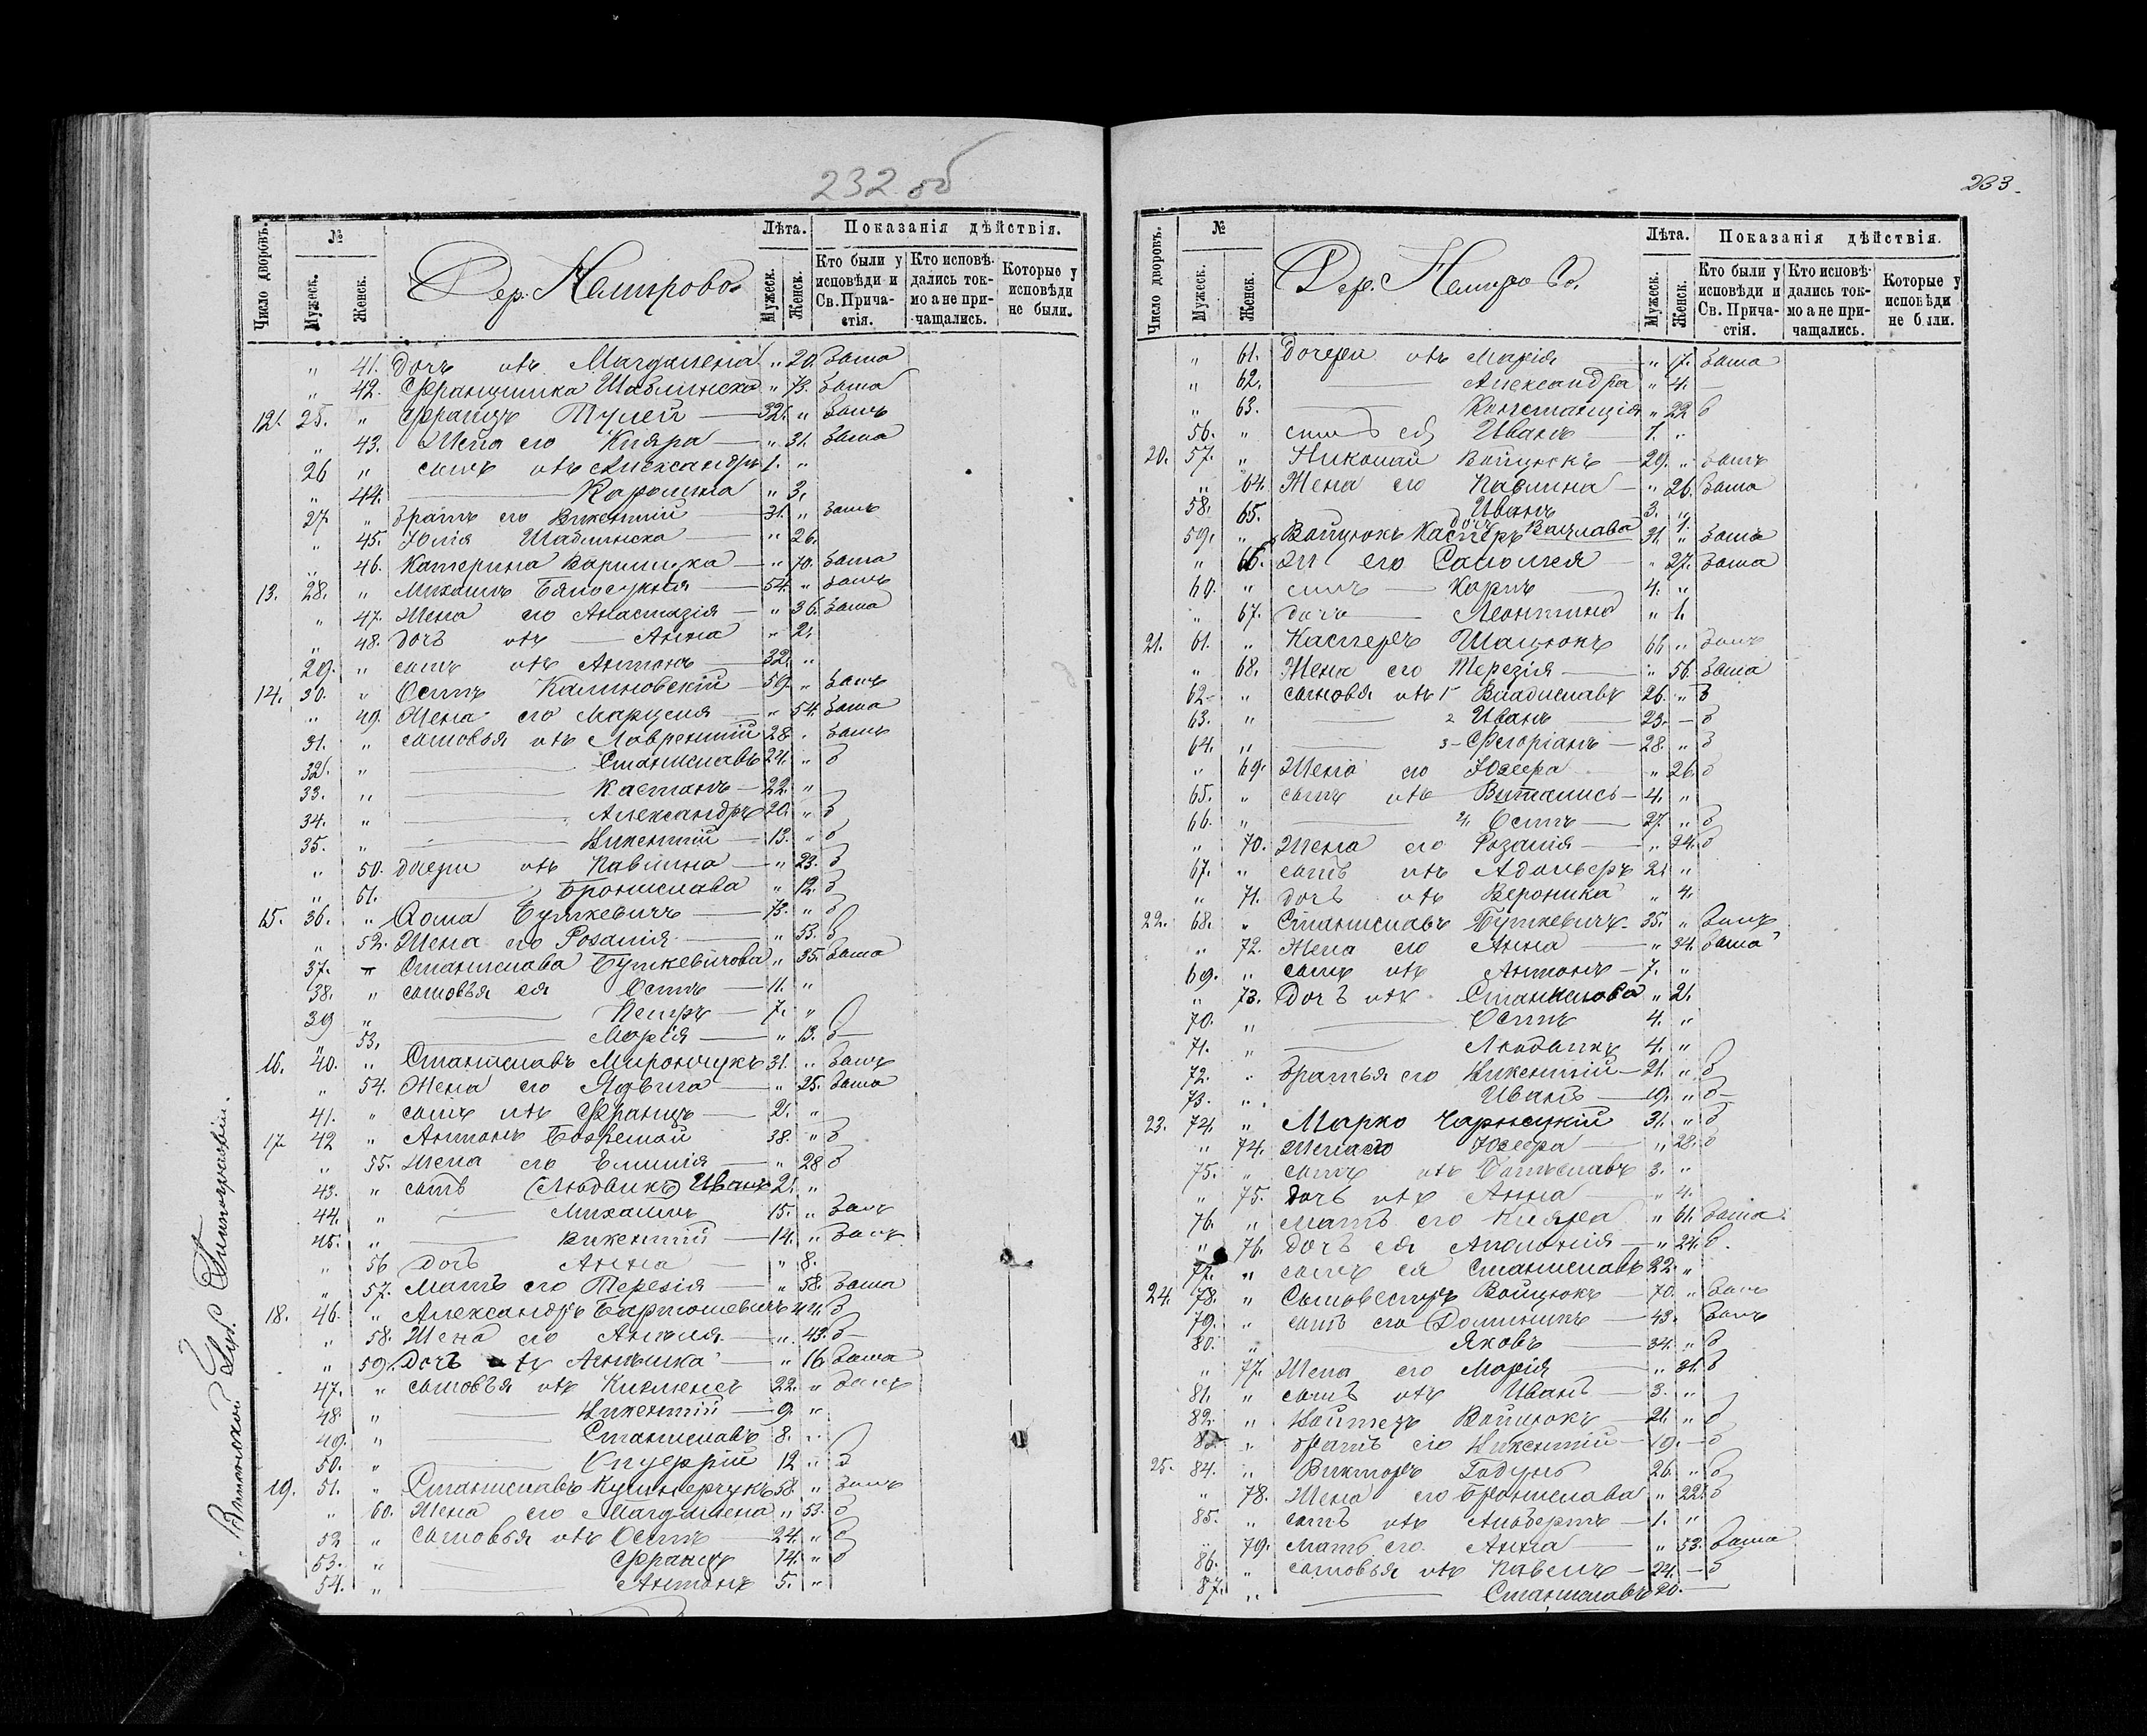 232 об
Число дворовъ.
№
Мужеск.
Женск.
Дер. Немирово.
Лѣта.
Мужеск.
Женск.
Показанія дѣйствія.
Кто были у исповѣди и Св. Прича-стія.
Кто исповѣ-дались ток-мо а не при-чащались.
Которые у исповѣди не были.
" 41. Дочь ихъ Магдалена " 20. была
" 42. Францишка Шаблинска " 73. была
12. 25. " Францъ Тулей 32. " былъ
" 43. Жена его Кляра " 31. была
26 " сынъ ихъ Александръ 1. "
" 44. Каролина " 3.
27 " братъ его Викентій 31. " былъ
" 45. Юлія Шаблинска " 26.
" 46. Катерина " 70. была
13. 28. " Михаилъ 54. " былъ
" 47. Жена его Анастазія " 36. была
" 48. дочь ихъ Анна " 2.
29. " сынъ ихъ Антонъ 32. "
14. 30. " Осипъ Калиновскій 59. " былъ
" 49. Жена его Марцеля " 54. была
31. " сыновья ихъ Лаврентій 28. " былъ
32. " Станиславъ 24. " б
33. " 22. "
34. " Александръ 20. " б
35. " Викентій 13. " б
" 50. дочери ихъ Павлина " 23. б
" 51. Бронислава " 12. б
15. 36. " Фома Буткевичъ 73. " б
" 52. Жена его Розалія " 53. б
37. " Станислава Буткевичова " 35. была
38. " сыновья ея Осипъ 11. "
39 " Петръ 7. "
" 53. Марія " 13. б
16. 40. " Станиславъ Мирончукъ 31. " былъ
" 54. Жена его Ядвига " 25. была
41. " сынъ ихъ Францъ 2. "
17 42 " Антонъ 38. " б
" 55. Жена его Емилія " 28 б
43. " сынъ (Людвикъ) Иванъ 2. "
44. " Михаилъ 15. " былъ
45. " Викентій 14. " былъ
" 56 дочь Анна " 8.
" 57. Мать его Терезія " 58. была
18. 46. " Александръ Бартошевичъ 44. б
" 58. Жена его Анеля " 43. б
" 59. Дочь ихъ " 16. была
47. " сыновья ихъ 22. " былъ
48. " Викентій 9. "
49. " Станиславъ 8. "
50. " 12 " б
19. 51. " Станиславъ Кушнерчукъ 58. " былъ
" 60. Жена его Магдалена " 53. б
52 " сыновья ихъ Осипъ 24. " б
53. " Францъ 14. " б
54. " Антонъ 5. "
233.
Число дворовъ.
№
Мужеск.
Женск.
Дер. Немирово.
Лѣта.
Мужеск.
Женск.
Показанія дѣйствія.
Кто были у исповѣди и Св. Прича-стія.
Кто исповѣ-дались ток-мо а не при-чащались.
Которые у исповѣди не были.
" 61. Дочери ихъ Марія " 17. была
" 62. Александра " 4. —
" 63. Констанція " 22 б
56. " сынъ ея Иванъ 1. "
20. 57. " Николай Войцюкъ 29. " былъ
" 64. Жена его Павлина " 26. была
58. Иванъ 3. "
65. дочь Вацлава 1.
59. " Войцюкъ Касперъ 31. " былъ
" 66. Ж его Саломея " 27. была
60. " сынъ Карлъ 4. "
" 67. дочь Леонтина " 1.
21. 61. " Касперъ Шацюкъ 66 " былъ
" 68. Жена его Терезія " 56. была
62. " сыновья ихъ 1 Владиславъ 26. " б
63. " 2 Иванъ 23. — б
64. " 3 Флоріанъ 28. " б
" 69. Жена его Юзефа " 26. б
65. " сынъ ихъ 4. "
66. " 4. Осипъ 27. " б
" 70. Жена его Розалія " 24. б
67. " сынъ ихъ Адольфъ 2. "
" 71. дочь ихъ Вероника " 4.
22. 68. " Станиславъ Буткевичъ 35. " былъ
" 72. Жена его Анна " 34. была
69. " сынъ ихъ Антонъ 7. "
" 73. Дочь ихъ Станислава " 2.
70. " Осипъ 4. "
71. " Людвикъ 4. "
72. " братья его Викентій 21. " б
73. " Иванъ 19. " б
23. 74. " Марко Чарнецкій 31. " б
" 74. Жена его Юзефа " 28. б
75. " сынъ ихъ Болеславъ 3. "
" 75. дочь ихъ Анна " 4.
76. " Мать его Кляра " 61. была
" 76. дочь ея Аполонія " 24. б.
77. " сынъ ея Станиславъ 22. "
24. 78. " Сильвестръ Войцюкъ 70. " былъ
79. " сынъ его Доминикъ 43. былъ
80. " Яковъ 34. " б
" 77. Жена его Марія " 31. б
81. " сынъ ихъ Иванъ 3. "
82. " Войтехъ Войцюкъ 21. " б
83. " братъ его Викентій 19. — б
25. 84. " Викторъ Годунъ 26. " б
" 78. Жена его Бронислава " 22. б
85. " сынъ ихъ Альбертъ 1. "
" 79. мать его Анна " 53. была
86. " сыновья ихъ Павелъ 24. — б
87. " Станиславъ 20. —
Виленской Губ. Типографіи.